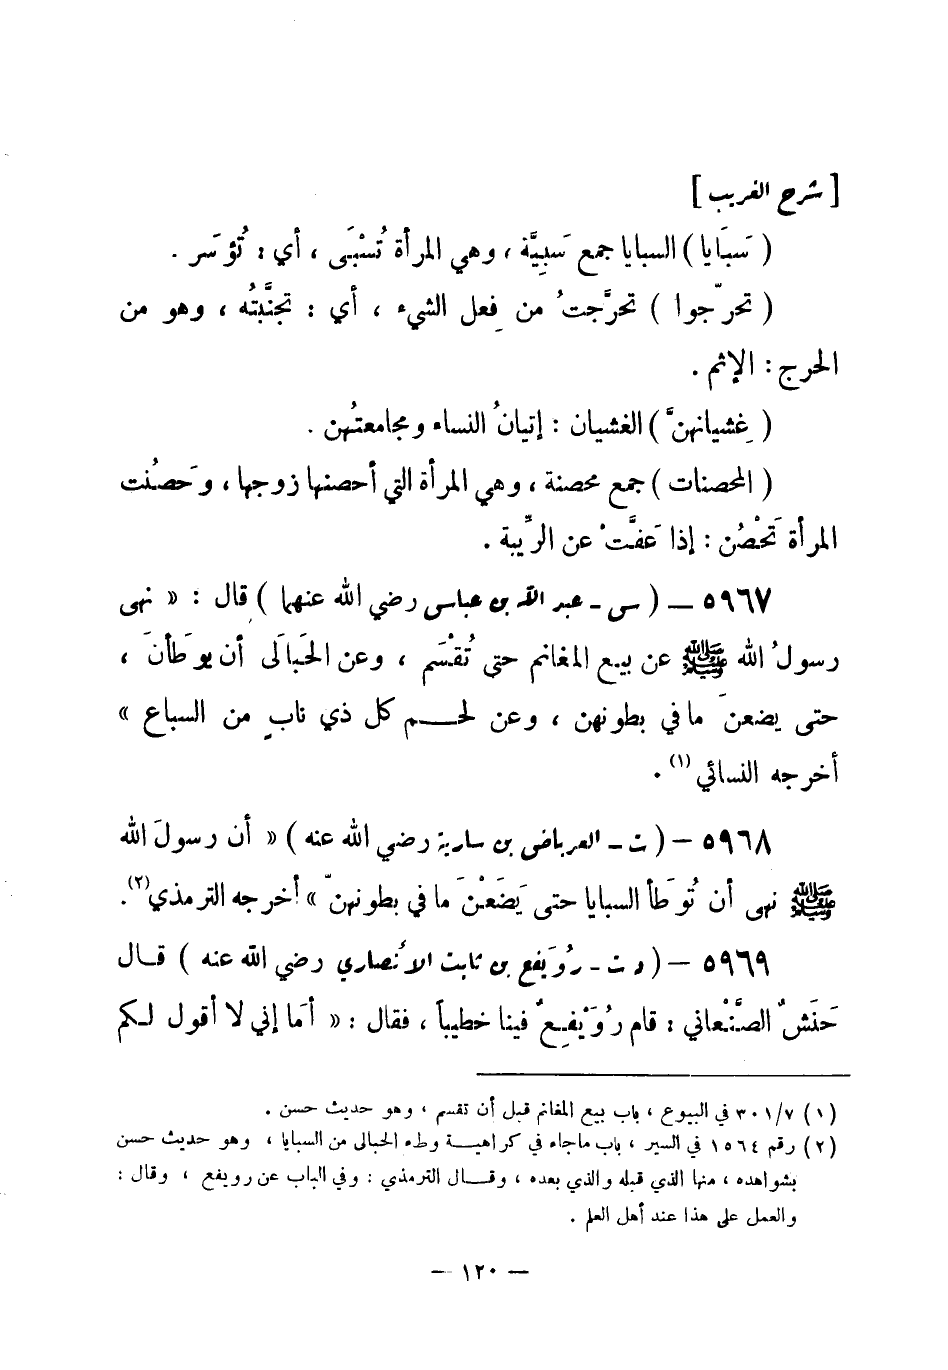 [ شرح الغريب ]
( سَبَايا ) السبايا جمع سَبِيَّة ، وهي المرأة تُسْبَى ، أي : تُؤسَر .
( تحرّجوا ) تحرَّجتُ من فِعل الشيء ، أي : تجنَّبتُه ، وهو من
الحرج : الإثم .
( غِشيانهنَّ ) الغشيان : إتيانُ النساء ومجامعتُهن .
( المحصنات ) جمع محصنة ، وهي المرأة التي أحصنها زوجها ، وحَصُنت
المرأة تَحْصُن : إذا عَفَّتْ عن الرِّيبة .
٥٩٦٧ — ( س - عبد الله بن عباس رضي الله عنهما ) قال : « نهى
رسولُ الله ﷺ عن بيع المغانم حتى تُقْسَم ، وعن الحَبَالَى أن يوطَأنَ ،
حتى يضعنَ ما في بطونهن ، وعن لحم كل ذي نابٍ من السباع »
أخرجه النسائي (١) .
٥٩٦٨ — ( ت - العرباض بن سارية رضي الله عنه ) « أن رسولَ الله
ﷺ نهى أن تُوطَأ السبايا حتى يَضَعْنَ ما في بطونهنّ » أخرجه الترمذي (٢) .
٥٩٦٩ — ( د ت - رُوَيفع بن ثابت الأنصاري رضي الله عنه ) قال
حَنَشٌ الصَّنْعاني : قام رُوَيْفِعٌ فينا خطيباً ، فقال : « أمَا إني لا أقول لكم
(١) ٣٠١/٧ في البيوع ، باب بيع المغانم قبل أن تقسم ، وهو حديث حسن .
(٢) رقم ١٥٦٤ في السير ، باب ماجاء في كراهية وطء الحبالى من السبايا ، وهو حديث حسن
بشواهده ، منها الذي قبله والذي بعده ، وقال الترمذي : وفي الباب عن رويفع ، وقال :
والعمل على هذا عند أهل العلم .
— ١٢٠ —